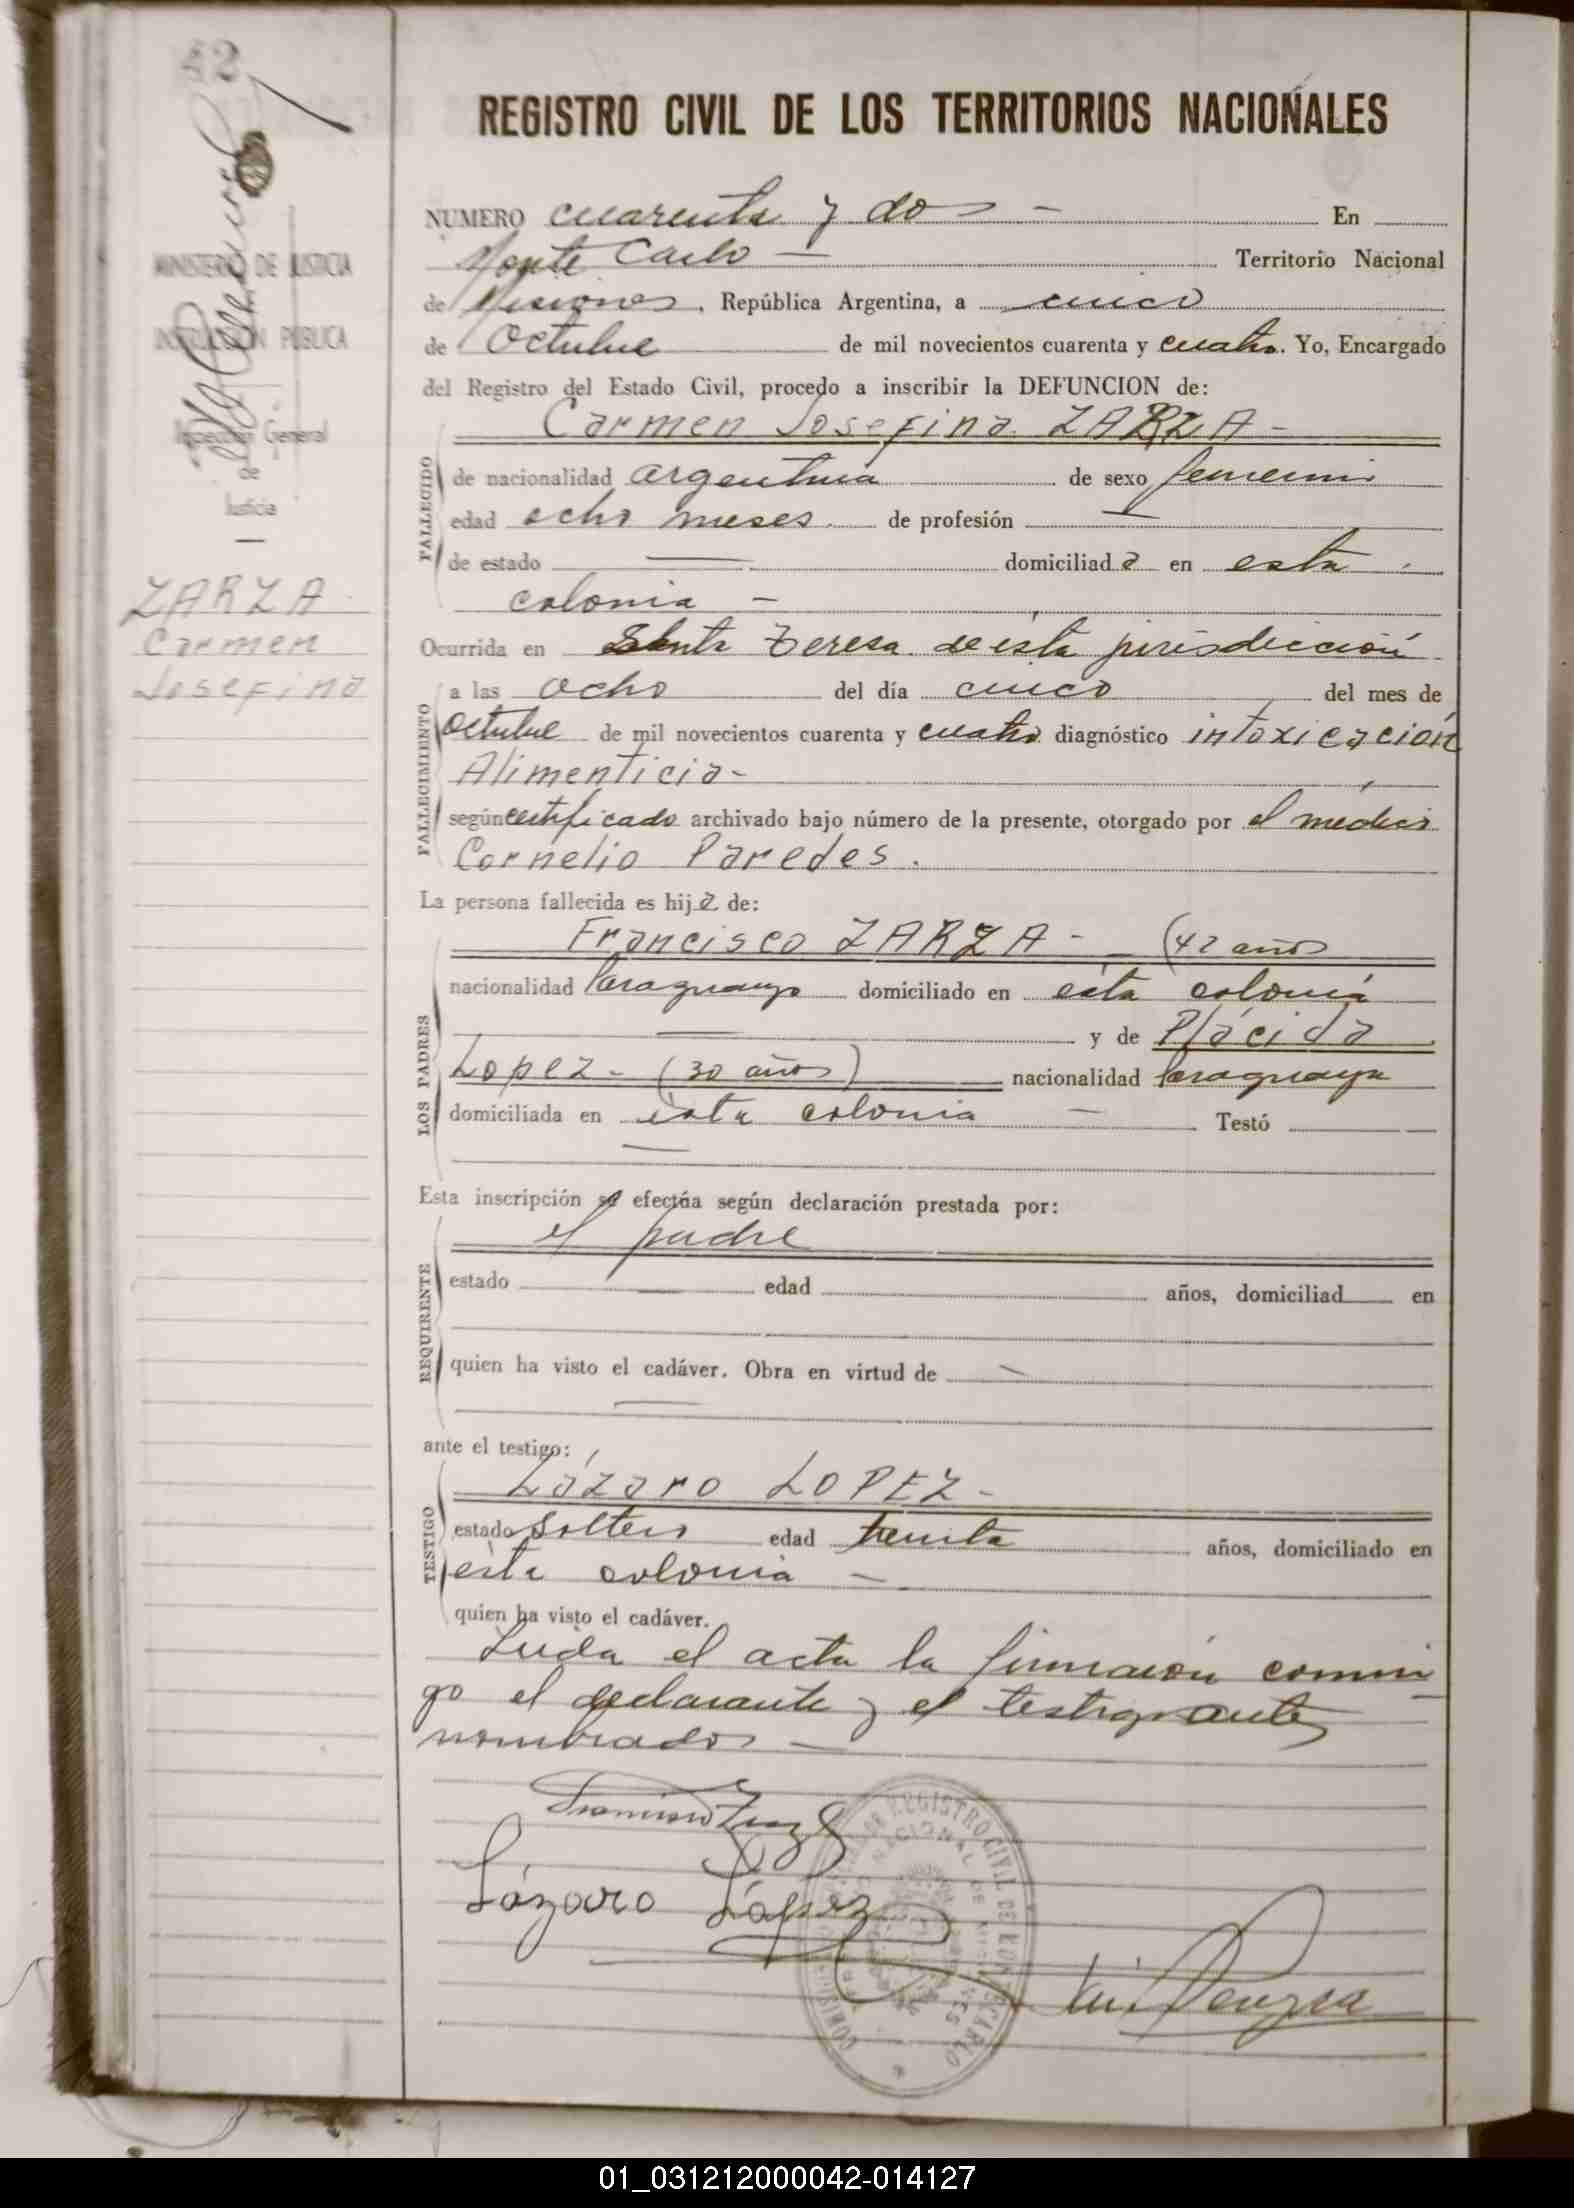 42
REGISTRO CIVIL DE LOS TERRITORIOS NACIONALES
MINISTERIO DE JUSTICIA
INSTRUCCIÓN PÚBLICA
Inspección General
de
Justicia
ZARZA
Carmen
Josefina
NUMERO cuarenta y dos - En
Monte Carlo - Territorio Nacional
de Misiones, República Argentina, a cinco
de Octubre de mil novecientos cuarenta y cuatro. Yo, Encargado
del Registro del Estado Civil, procedo a inscribir la DEFUNCION de:
Carmen Josefina ZARZA -
FALLECIDO
de nacionalidad argentina de sexo femenino
edad ocho meses de profesión —
de estado — domiciliada en esta
colonia -
Ocurrida en Santa Teresa de esta jurisdicción
FALLECIMIENTO
a las ocho del día cinco del mes de
octubre de mil novecientos cuarenta y cuatro diagnóstico intoxicación
Alimenticia-
según certificado archivado bajo número de la presente, otorgado por el médico
Cornelio Paredes.
La persona fallecida es hija de:
LOS PADRES
Francisco ZARZA - (42 años
nacionalidad Paraguayo domiciliado en esta colonia
— y de Plácida
Lopez - (30 años) nacionalidad Paraguaya
domiciliada en esta colonia - Testó
Esta inscripción se efectúa según declaración prestada por:
REQUIRENTE
el padre
estado — edad años, domiciliad en
quien ha visto el cadáver. Obra en virtud de —
ante el testigo:
TESTIGO
Lázaro LOPEZ-
estado soltero edad treinta años, domiciliado en
esta colonia -
quien ha visto el cadáver.
Leida el acta la firmaron conmi
go el declarante y el testigo antes
nombrados -
Francisco Zarza
Lázaro López
REGISTRO CIVIL DE MONTECARLO
NACIONAL DE MISIONES
01_031212000042-014127